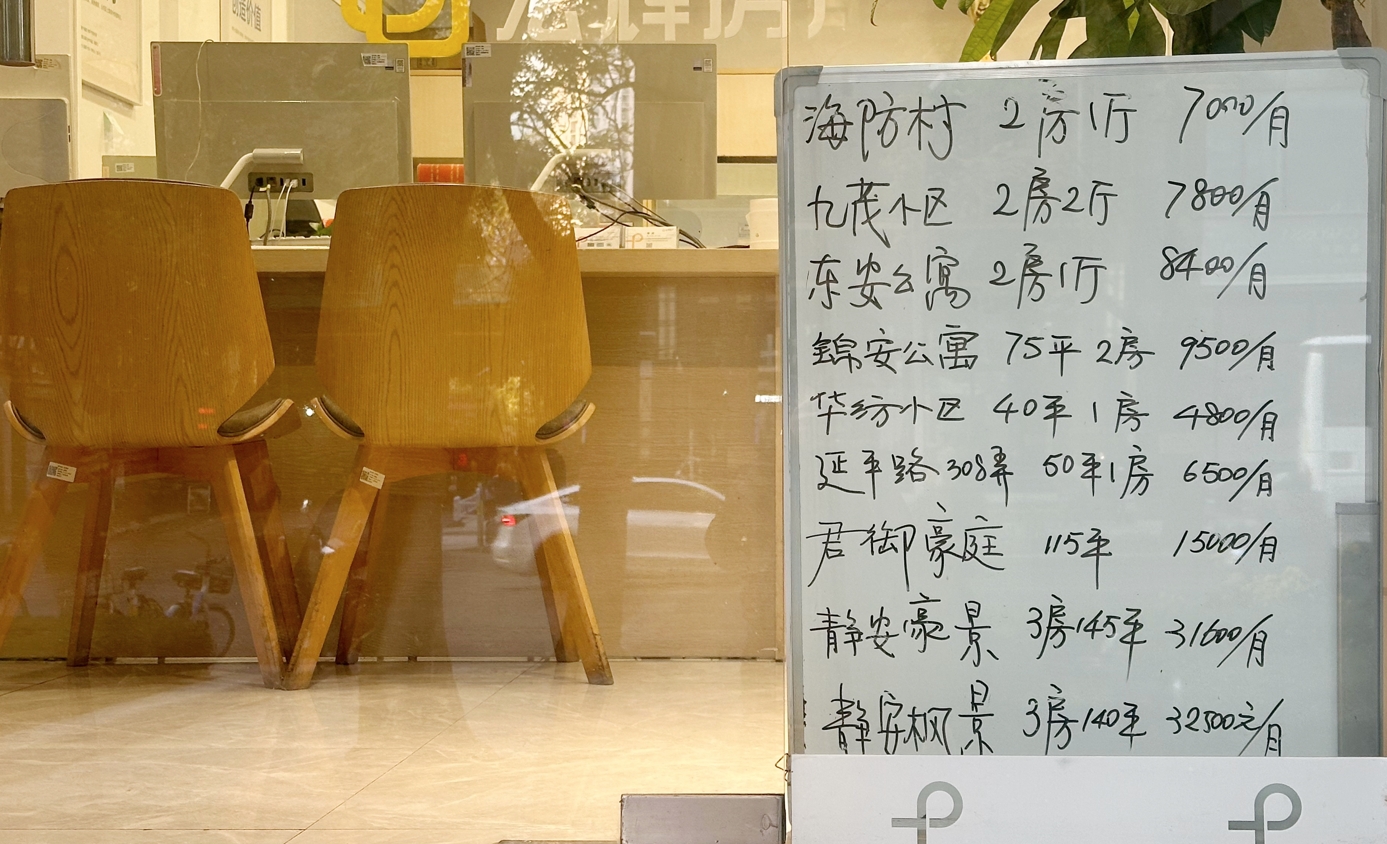 创造价值
海防村 2房1厅 7000/月
九茂小区 2房2厅 7800/月
东安公寓 2房1厅 8400/月
锦安公寓 75平 2房 9500/月
华纺小区 40平 1房 4800/月
延平路308弄 50平1房 6500/月
君御豪庭 115平 15000/月
静安豪景 3房145平 31600/月
静安枫景 3房140平 32500元/月